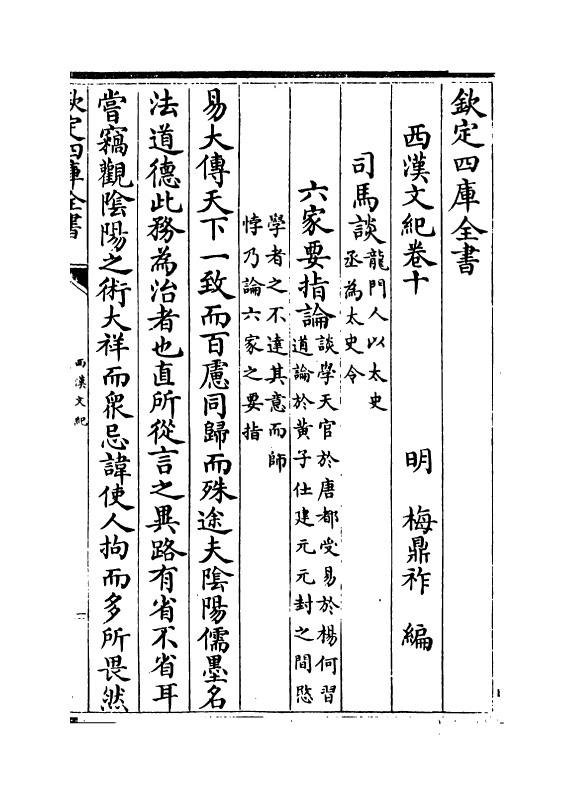 欽定四庫全書
西漢文紀卷十
明 梅鼎祚 編
司馬談龍門人以太史
丞為太史令
六家要指論談學天官於唐都受易於楊何習
道論於黄子仕建元元封之間愍
學者之不達其意而師
悖乃論六家之要指
易大傳天下一致而百慮同歸而殊途夫隂陽儒墨名
法道德此務為治者也直所從言之異路有省不省耳
嘗竊觀隂陽之術大祥而衆忌諱使人拘而多所畏然
欽定四庫全書
西漢文紀
一